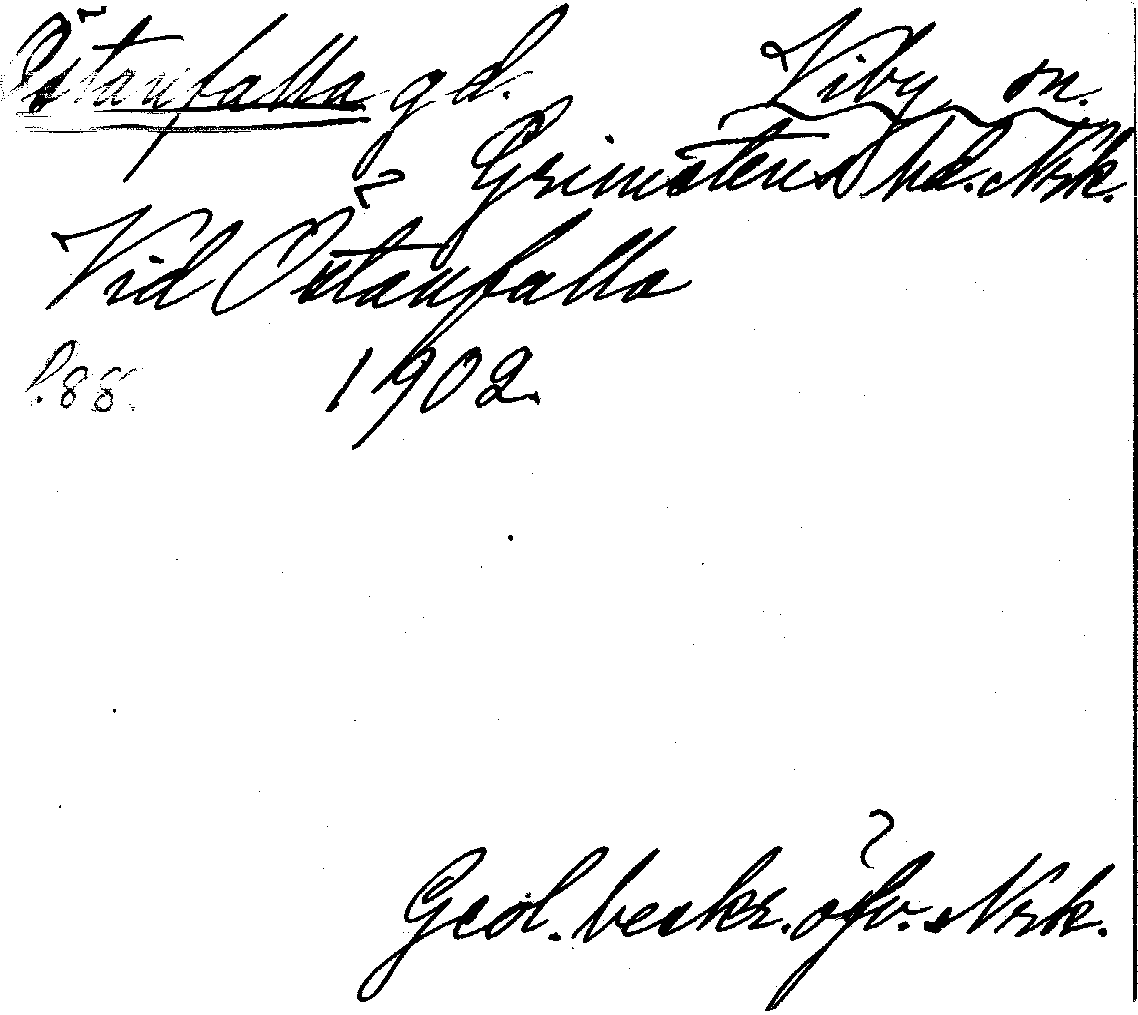 Östanfalla gd. Viby sn.
Grimstens hd. Nrk.
Vid Östanfalla
P.88. 1902.
Geol. beskr. öfv. Nrk.